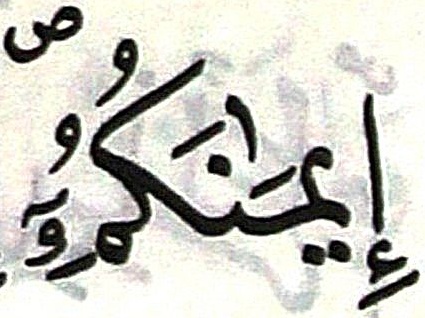 إِيمَٰنَكُمُۥٓ ص